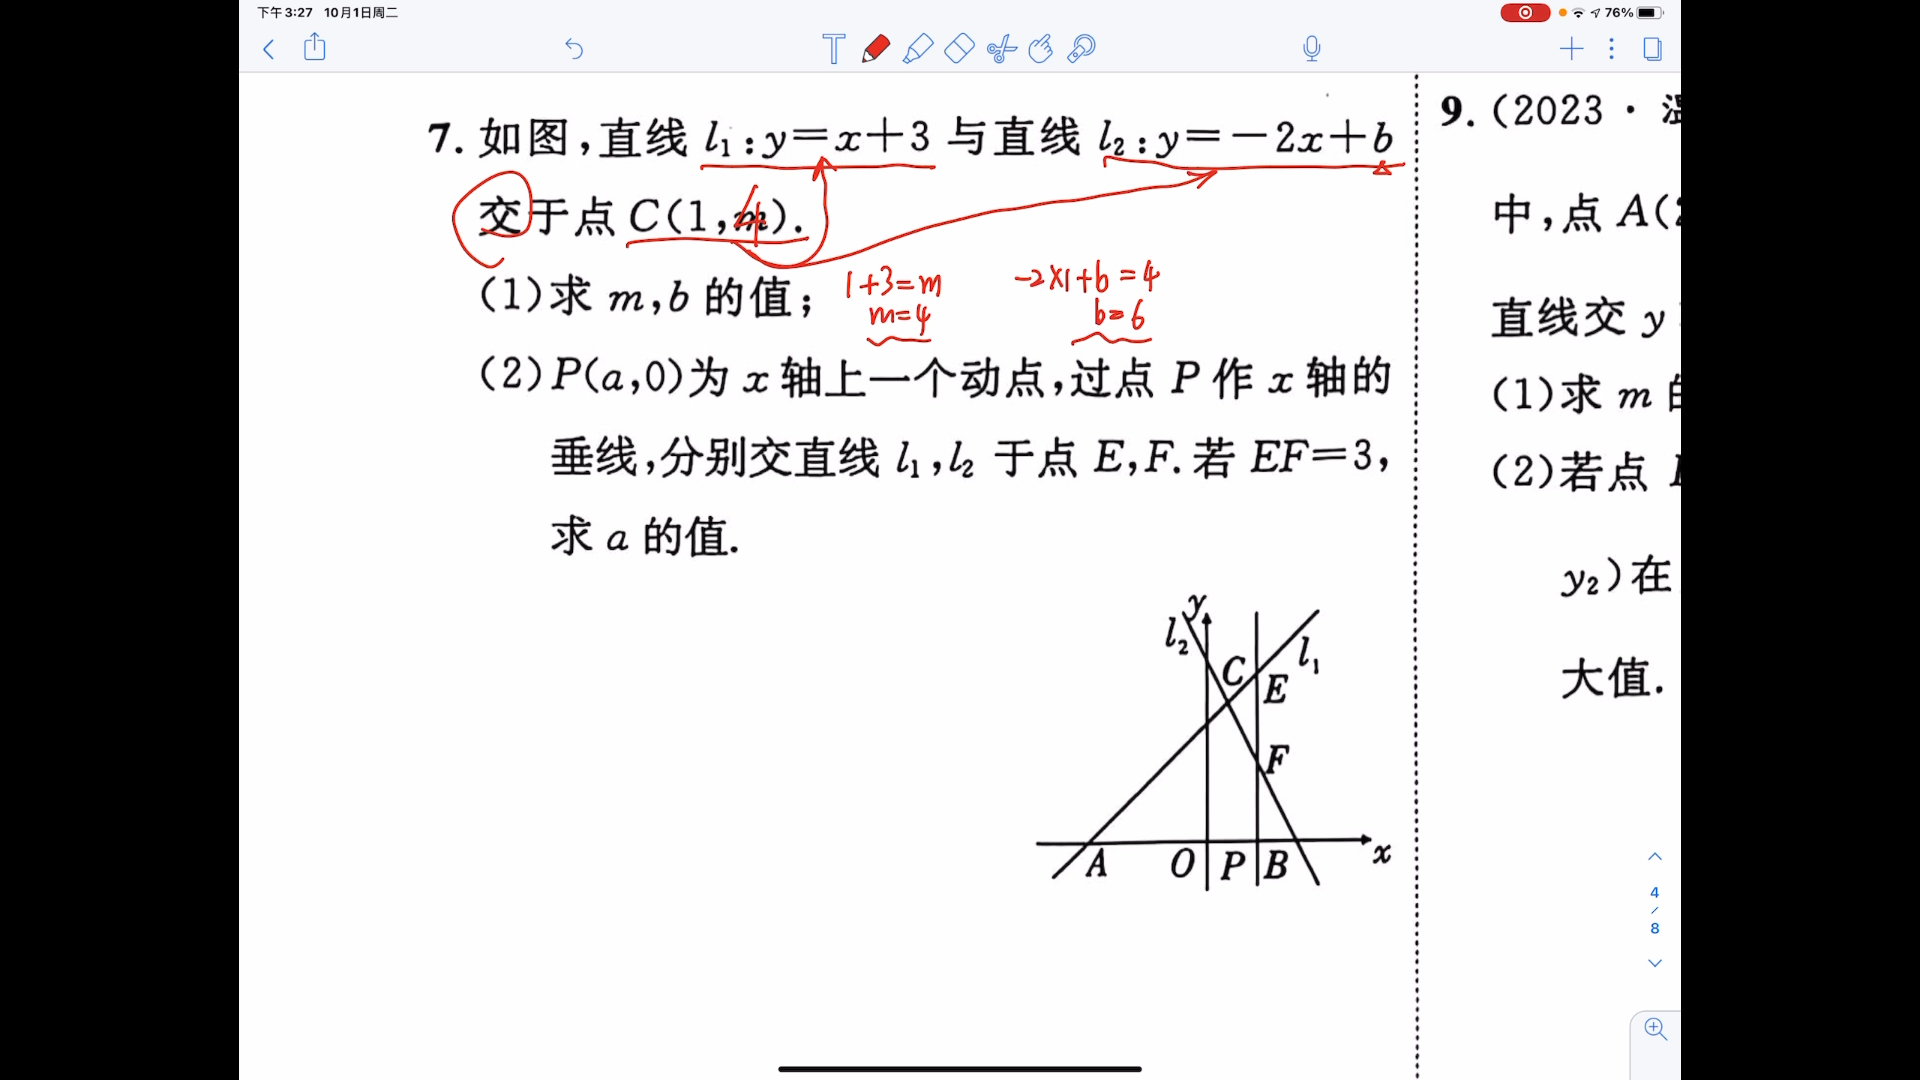 下午3:27 10月1日周二
76%
7. 如图,直线 l₁:y=x+3 与直线 l₂:y=-2x+b
交于点 C(1,m).
4
(1)求 m,b 的值;
1+3=m
m=4
-2×1+b=4
b=6
(2)P(a,0)为 x 轴上一个动点,过点 P 作 x 轴的
垂线,分别交直线 l₁,l₂ 于点 E,F.若 EF=3,
求 a 的值.
y
l₂
C
l₁
E
F
A O P B x
9. (2023·
中,点 A(
直线交 y
(1)求 m
(2)若点
y₂)在
大值.
4
/
8